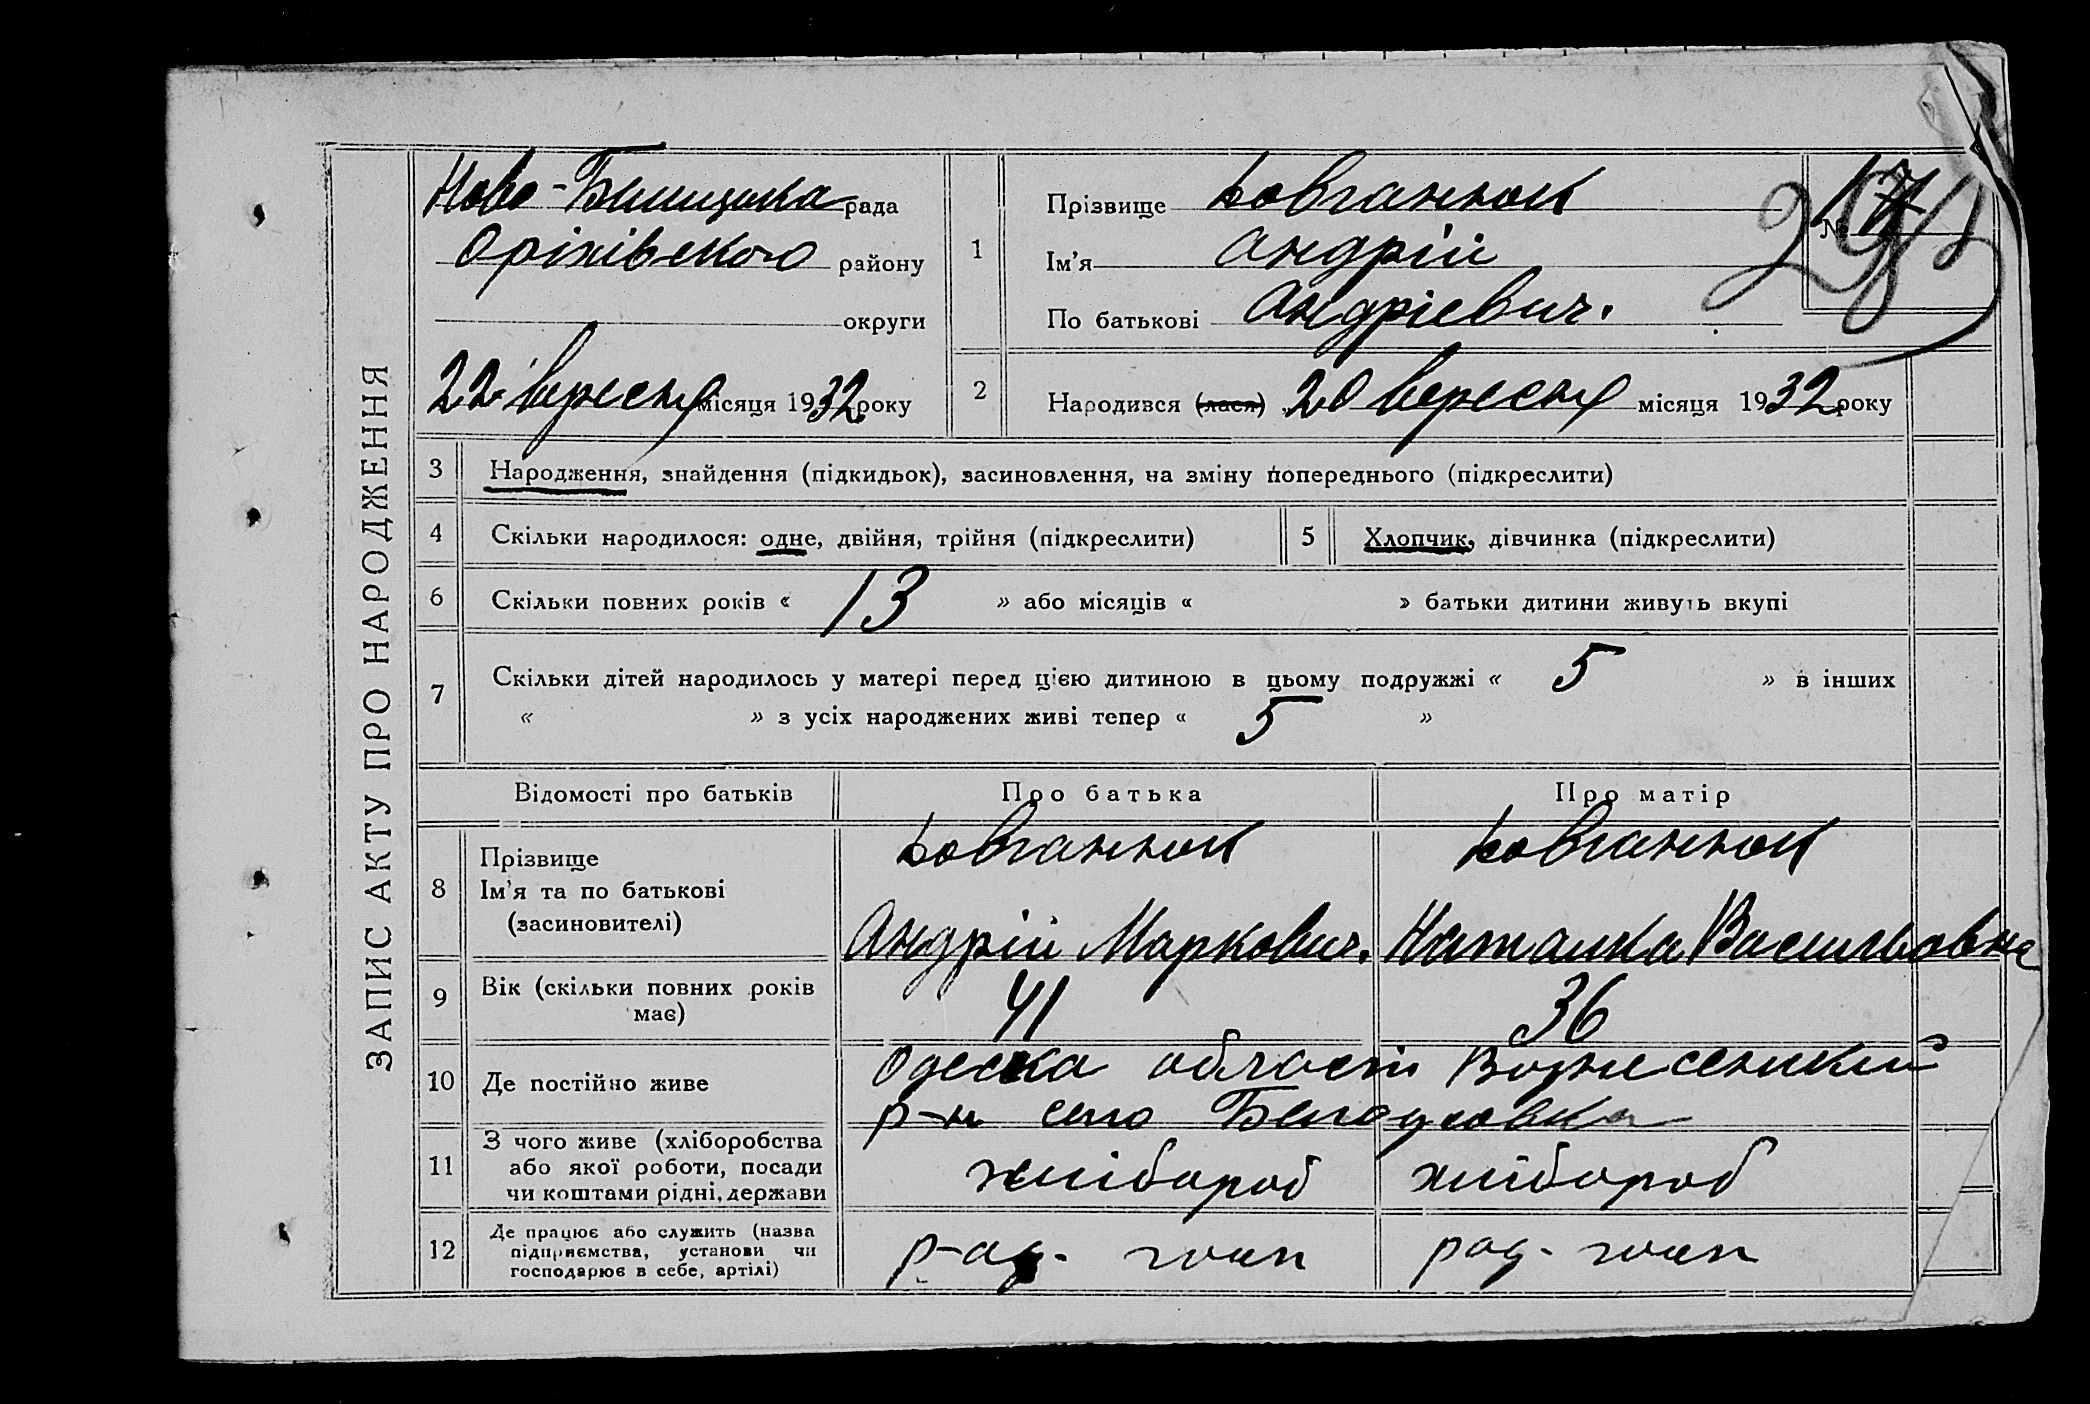 ЗАПИС АКТУ ПРО НАРОДЖЕННЯ
рада
Оріхівського району
округи
22 вересня місяця 1932 року
1
Прізвище Ковганюк
Ім'я Андрій
По батькові Андрієвич.
№
2
Народився (лася) 20 вересня місяця 1932 року
3 Народження, знайдення (підкидьок), засиновлення, на зміну попереднього (підкреслити)
4 Скільки народилося: одне, двійня, трійня (підкреслити) 5 Хлопчик, дівчинка (підкреслити)
6 Скільки повних років « 13 » або місяців « » батьки дитини живуть вкупі
7 Скільки дітей народилось у матері перед цією дитиною в цьому подружжі « 5 » в інших
« » з усіх народжених живі тепер « 5 »
Відомості про батьків Про батька Про матір
8 Прізвище
Ім'я та по батькові
(засиновителі)
Андрій Маркович. Наталка Васильовна
9 Вік (скільки повних років має) 41 36
10 Де постійно живе Одеська області Вознесенский
р-н село
11 З чого живе (хліборобства
або якої роботи, посади
чи коштами рідні, держави
хлібороб хлібороб
12 Де працює або служить (назва
підприємства, установи чи
господарює в себе, артілі)
рад. госп рад. госп